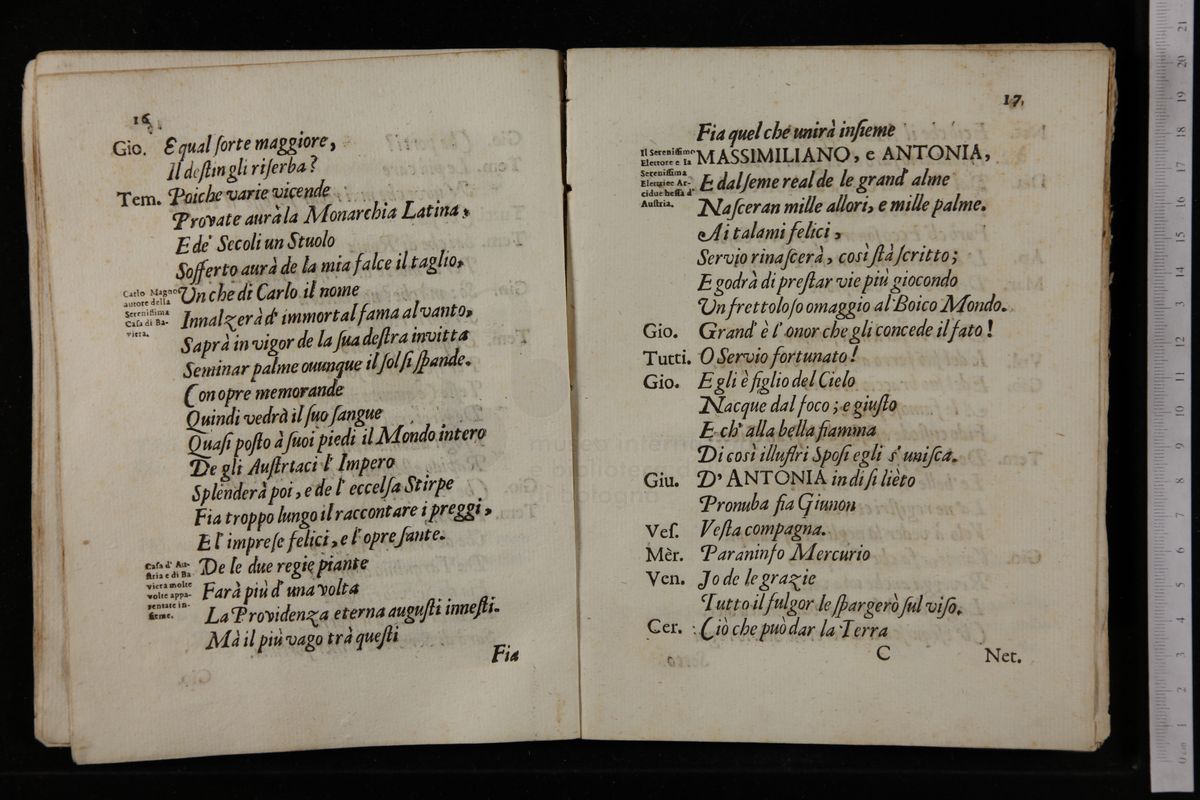 16
Gio. E qual ſorte maggiore,
Il deſtin gli riſerba?
Tem. Poiche varie vicende
Provate aurà la Monarchia Latina,
E de' Secoli un Stuolo
Sofferto aurà de la mia falce il taglio,
Carlo Magno
autore della
Sereniſſima
Caſa di Ba-
viera.
Un che di Carlo il nome
Innalzerà d' immortal fama al vanto,
Saprà in vigor de la ſua deſtra invitta
Seminar palme ouunque il ſol ſi ſpande.
Con opre memorande
Quindi vedrà il ſuo ſangue
Quaſi poſto à ſuoi piedi il Mondo intero
De gli Auſtrtaci l' Impero
Splenderà poi, e de l' eccelſa Stirpe
Fia troppo lungo il raccontare i preggi,
E l' impreſe felici, e l' opre ſante.
Caſa d' Au-
ſtria e di Ba
viera molte
volte appa-
rentate in-
ſieme.
De le due regie piante
Farà più d' una volta
La Providenza eterna auguſti inneſti.
Mà il più vago trà queſti
Fia
17.
Fia quel che unirà inſieme
Il Sereniſſimo
Elettore e la
Sereniſſima
Elettrice Ar-
ciducheſſa d'
Auſtria.
MASSIMILIANO, e ANTONIA,
E dal ſeme real de le grand' alme
Naſceran mille allori, e mille palme.
Ai talami felici,
Servio rinaſcerà, così ſtà ſcritto;
E godrà di preſtar vie più giocondo
Un frettoloſo omaggio al Boico Mondo.
Gio. Grand' è l' onor che gli concede il fato!
Tutti. O Servio fortunato!
Gio. Egli è figlio del Cielo
Nacque dal foco; e giuſto
E ch' alla bella fiamma
Di così illuſtri Spoſi egli s' uniſca.
Giu. D' ANTONIA indi ſi lièto
Pronuba fia Giunon
Veſ. Veſta compagna.
Mèr. Paraninfo Mercurio
Ven. Jo de le grazie
Tutto il fulgor le ſpargerò ſul viſo.
Cer. Ciò che può dar la Terra
C
Net.